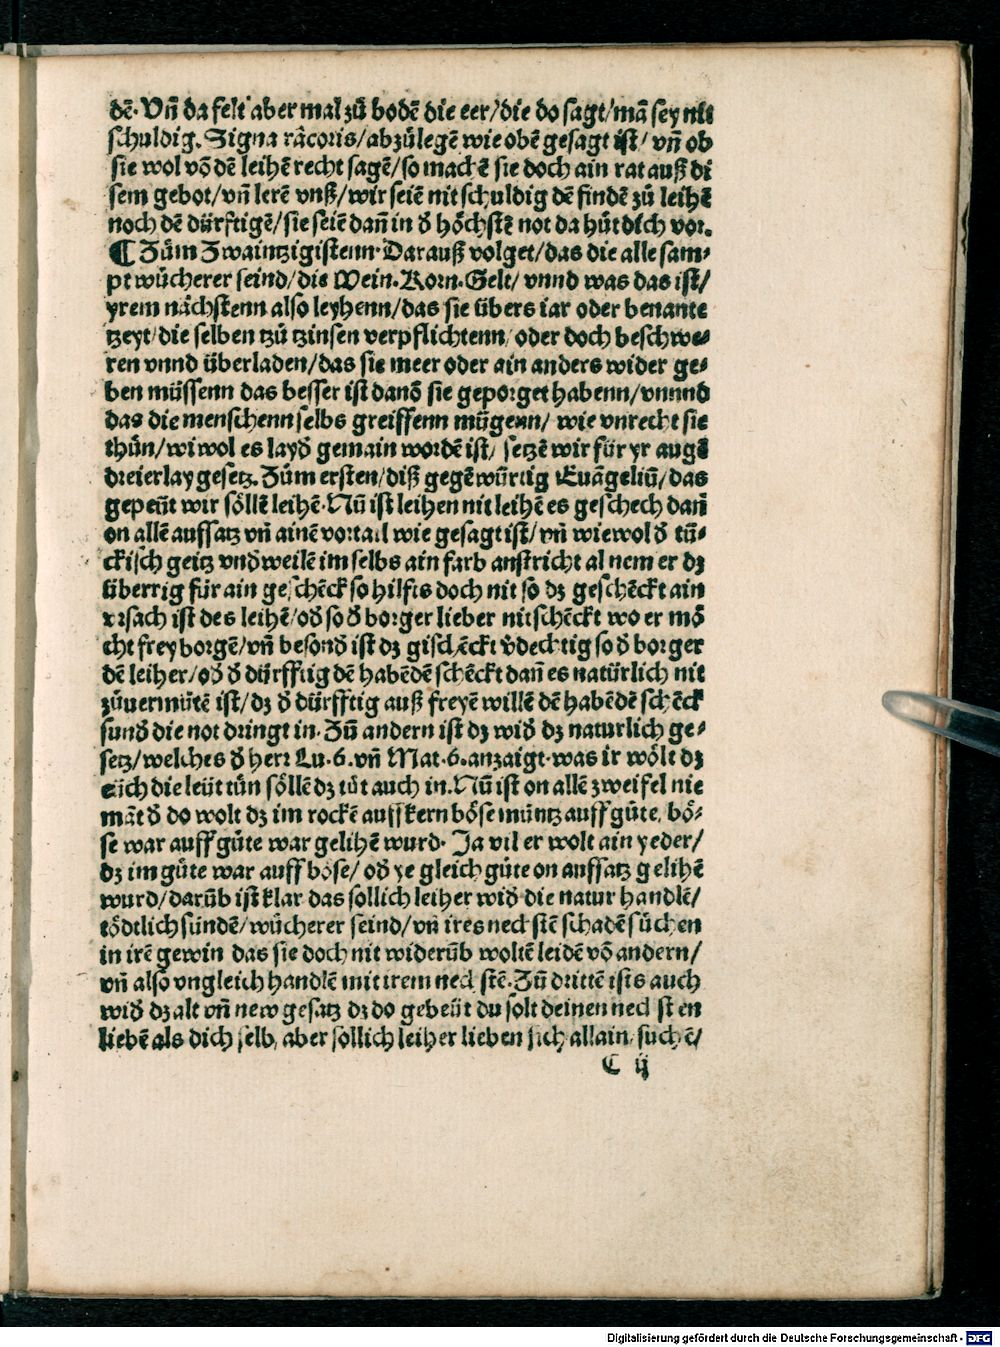 dē. Vñ da felt aber mal zů bodē die eer/die do sagt/mā sey nit
schuldig. Signa rācoris/abzůlegē wie obē gesagt ist/ vñ ob
sie wol võ dē leihē recht sagē/so machē sie doch ain rat auß di
sem gebot/vñ lerē vnß/wir seiē nit schuldig dē findē zů leihē
noch dē dürftigē/sie seiē dañ in đ höchstē not da hüt dich vor.
¶ Zům Zwaintzigistenn. Darauß volget/das die alle sam⸗
pt wůcherer seind/die Wein. Korn. Gelt/ vnnd was das ist/
yrem nächstenn also leyhenn/das sie übers iar oder benante
tzeyt/die selben tzů tzinsen verpflichtenn/oder doch beschwe⸗
ren vnnd überladen/das sie meer oder ain anders wider ge⸗
ben müssenn das besser ist danō sie geporget habenn/vnnnd
das die menschenn selbs greiffenn mügenn/ wie vnrecht sie
thůn/wiwol es layđ gemain wordē ist/ setzē wir für yr augē
dreierlay gesetz. Zům ersten/diß gegēwürtig Euāgeliū/das
gepeüt wir söllē leihē. Nū ist leihen nit leihē es geschech dañ
on allē auffsatz vñ ainē vortail wie gesagt ist/ vñ wiewol đ tü⸗
ckisch geitz vnđweilē im selbs ain farb anstricht al nem er dz
überrig für ain geschēck so hilfts doch nit so dz geschēckt ain
vrsach ist des leihē/ođ so đ borger lieber nit schēckt wo er mö
cht frey borgē/vñ besonđ ist dz gischēckt v̄dechtig so đ borger
dē leiher/ođ đ dürfftig dē habēdē schēckt dañ es natürlich nit
zůuermůtē ist/dz đ dürfftig auß freyē willē dē habēdē schēck
sunđ die not dringt in. Zū andern ist dz wiđ dz naturlich ge⸗
setz/welches đ herr Lu. 6. vñ Mat. 6. anzaigt was ir wölt dz
eüch die leüt tün söllē dz tüt auch in. Nū ist on allē zweifel nie
māt đ do wolt dz im rockē auff kern böse müntz auff gůte, bö⸗
se war auff gůte war gelihē wurd. Ja vil er wolt ain yeder/
dz im gůte war auff böse/ ođ ye gleich gůte on auffsatz gelihē
wurd/darūb ist klar das sollich leiher wiđ die natur handlē/
tödtlich sündē/wůcherer seind/vñ ires nechstē schadē sůchen
in irē gewin das sie doch nit widerūb woltē leidē võ andern/
vñ also vngleich handlē mit irem nechstē. Zū drittē ists auch
wiđ dz alt vñ new gesatz dz do gebeüt du solt deinen nechsten
liebē als dich selb, aber sollich leiher lieben sich allain, suchē/
C ij
Digitalisierung gefördert durch die Deutsche Forschungsgemeinschaft - DFG